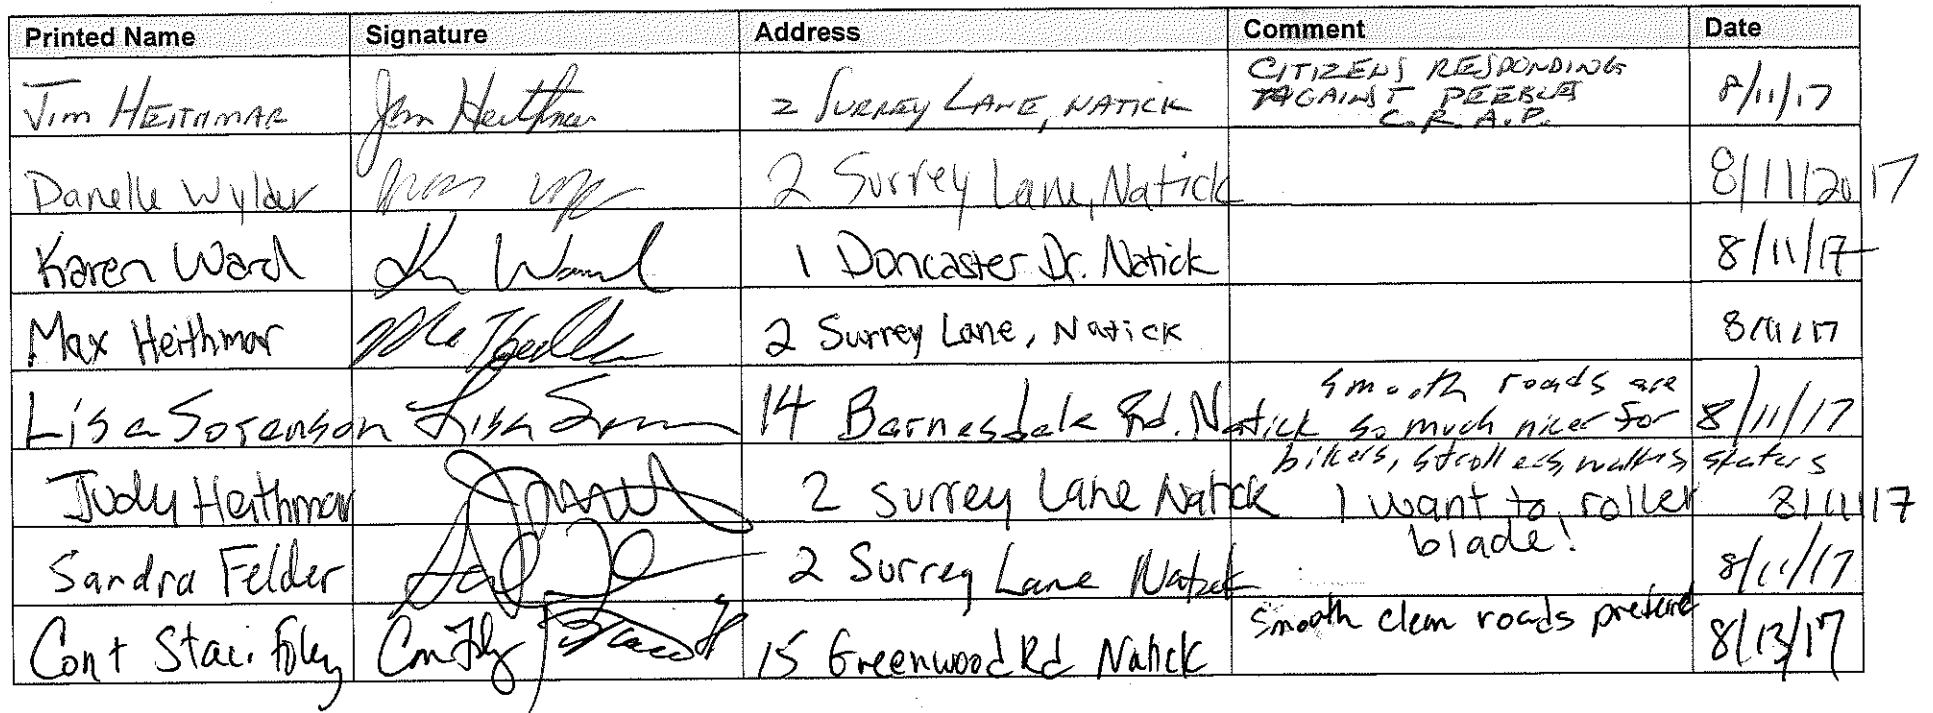 Printed Name Signature Address Comment Date
Jim HEITHMAR Jim Heithmar 2 SURREY LANE, NATICK CITIZENS RESPONDING AGAINST PEEBLES C.R.A.P. 8/11/17
Danelle Wylder 2 Surrey Lane, Natick 8/11/2017
Karen Ward K Ward 1 Doncaster Dr. Natick 8/11/17
Max Heithmar 2 Surrey Lane, Natick 8/11/17
Lisa Sorenson Lisa Sorenson 14 Barnesdale Rd. Natick smooth roads are so much nicer for bikers, strollers, walkers, skaters 8/11/17
Judy Heithmar 2 Surrey Lane Natick I want to roller blade! 8/11/17
Sandra Felder 2 Surrey Lane Natick 8/11/17
Con + Staci Foley Con Foley 15 Greenwood Rd Natick Smooth clean roads prefered 8/13/17